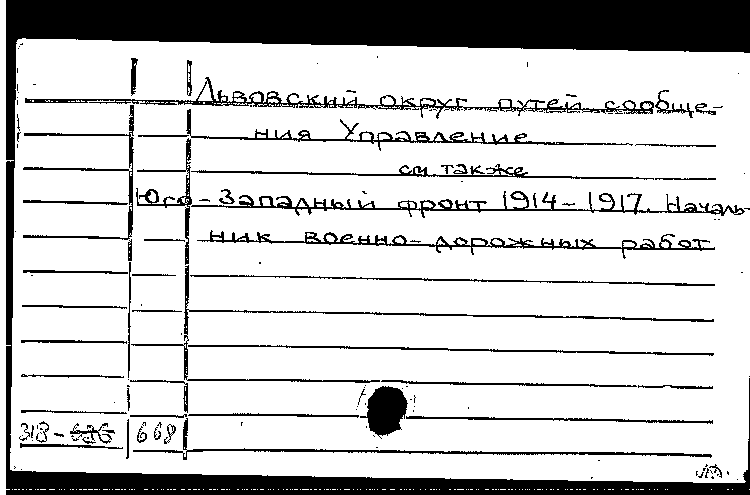 Львовский округ путей сообще-
ния Управление
см также
Юго-Западный фронт 1914-1917. Началь-
ник военно-дорожных работ
318-636 668